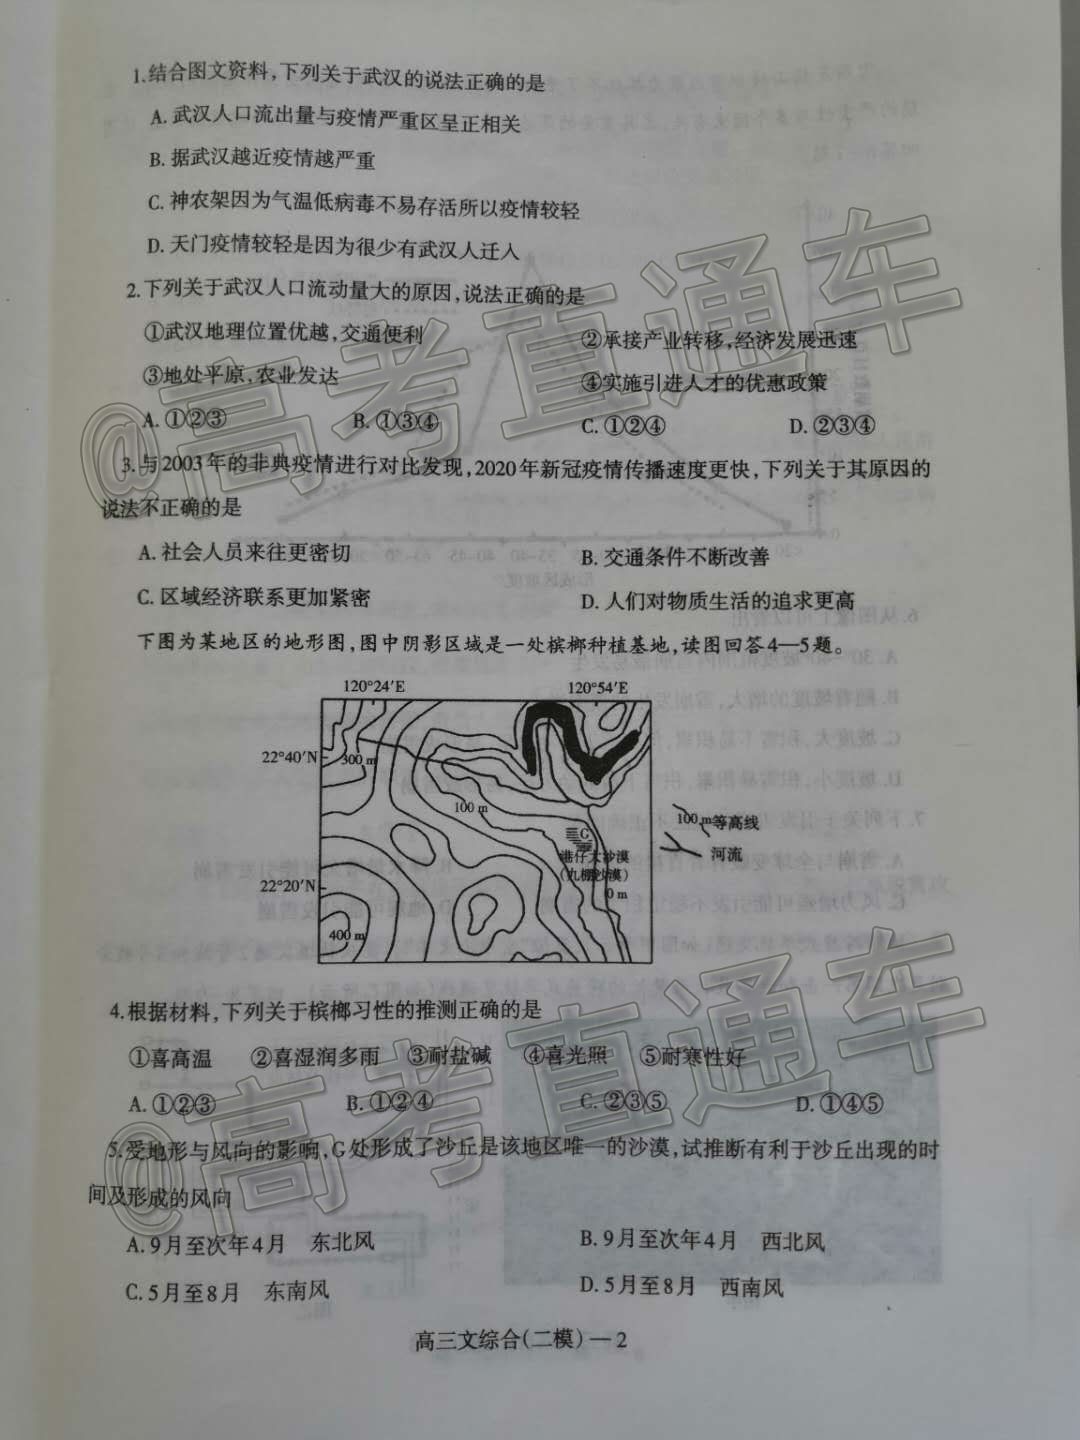 1.结合图文资料,下列关于武汉的说法正确的是
A. 武汉人口流出量与疫情严重区呈正相关
B. 据武汉越近疫情越严重
C. 神农架因为气温低病毒不易存活所以疫情较轻
D. 天门疫情较轻是因为很少有武汉人迁入
2.下列关于武汉人口流动量大的原因,说法正确的是
①武汉地理位置优越,交通便利 ②承接产业转移,经济发展迅速
③地处平原,农业发达 ④实施引进人才的优惠政策
A. ①②③ B. ①③④ C. ①②④ D. ②③④
3.与2003年的非典疫情进行对比发现,2020年新冠疫情传播速度更快,下列关于其原因的
说法不正确的是
A. 社会人员来往更密切 B. 交通条件不断改善
C. 区域经济联系更加紧密 D. 人们对物质生活的追求更高
下图为某地区的地形图,图中阴影区域是一处槟榔种植基地,读图回答4—5题。
120°24′E 120°54′E
22°40′N
300 m
100 m
G
港仔大沙漠
(九棚沙漠)
22°20′N
0 m
400 m
100 m等高线
河流
4.根据材料,下列关于槟榔习性的推测正确的是
①喜高温 ②喜湿润多雨 ③耐盐碱 ④喜光照 ⑤耐寒性好
A. ①②③ B. ①②④ C. ②③⑤ D. ①④⑤
5.受地形与风向的影响,G处形成了沙丘是该地区唯一的沙漠,试推断有利于沙丘出现的时
间及形成的风向
A. 9月至次年4月 东北风 B. 9月至次年4月 西北风
C. 5月至8月 东南风 D. 5月至8月 西南风
高三文综合(二模) — 2
@高考直通车
@高考直通车